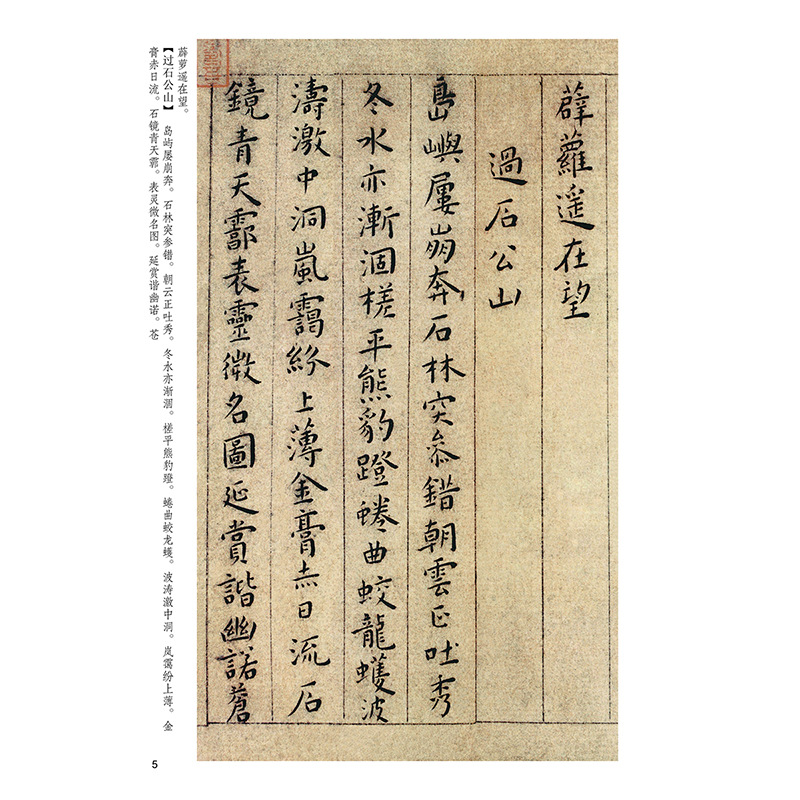 薜蘿遥在望
過石公山
島嶼屢崩奔石林突叅錯朝雲正吐秀
冬水亦漸涸槎平熊豹蹬蜷曲蛟龍蠖波
濤激中洞嵐靄紛上薄金膏赤日流石
鏡青天霩表靈微名圖延賞諧幽諾蒼
薜萝遥在望。
【过石公山】 岛屿屡崩奔。石林突参错。朝云正吐秀。冬水亦渐涸。槎平熊豹蹬。蜷曲蛟龙蠖。波涛激中洞。岚霭纷上薄。金
膏赤日流。石镜青天霩。表灵微名图。延赏谐幽诺。苍
5